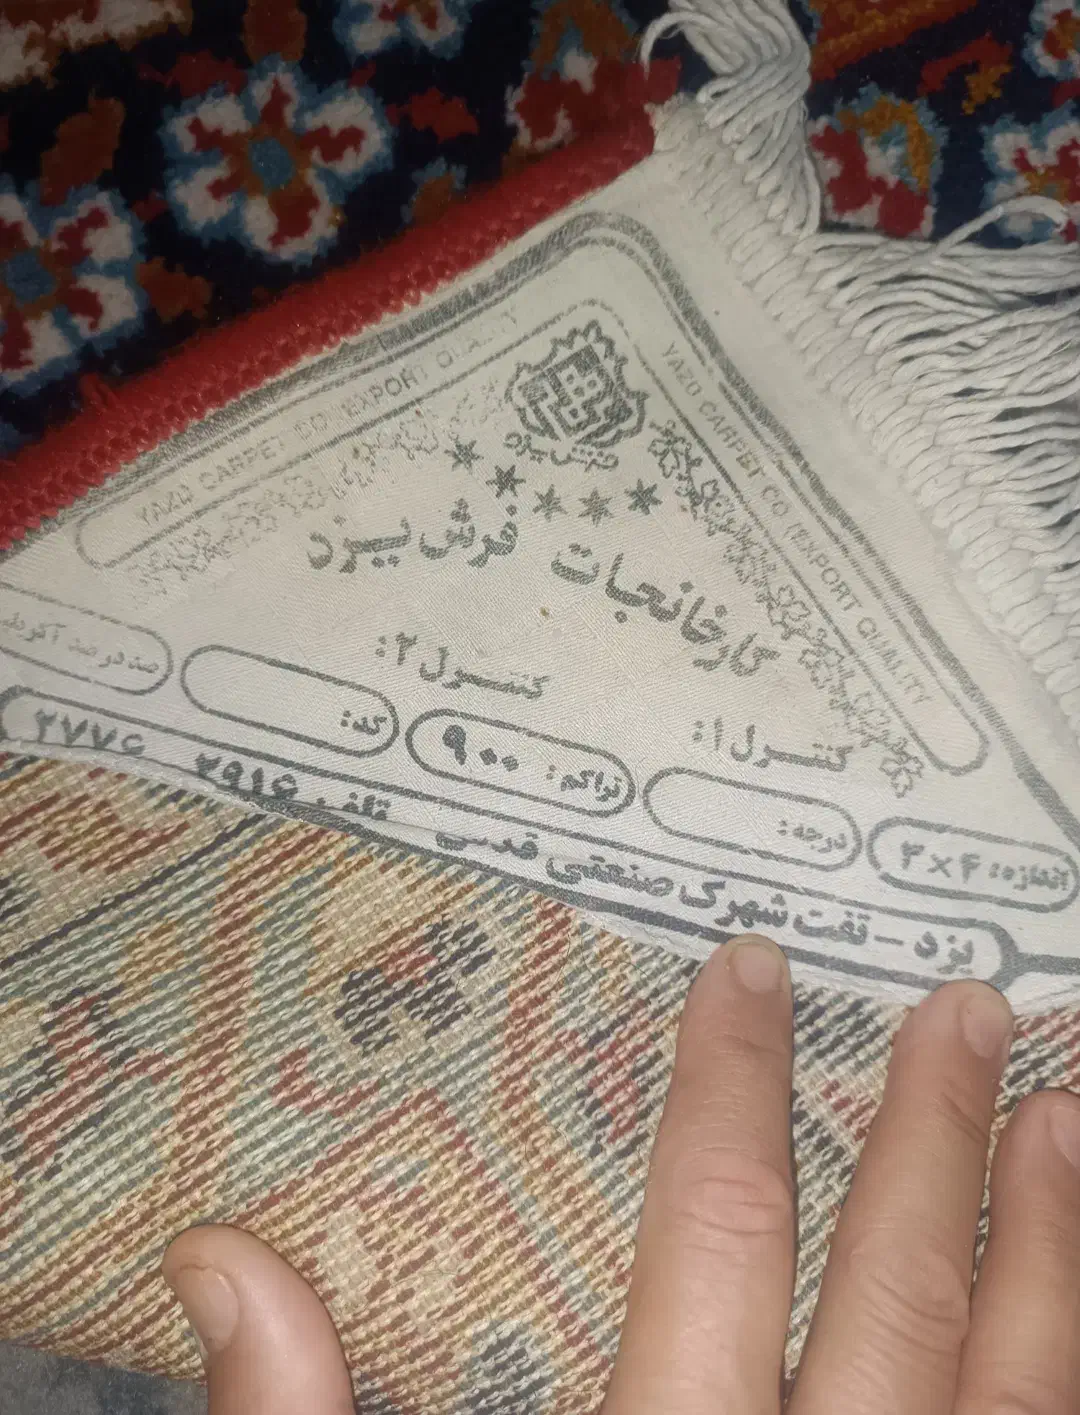 YAZD CARPET CO (EXPORT QUALITY
YAZD CARPET CO (EXPORT QUALITY
فرش یزد
کارخانجات فرش یزد
کنترل ۱:
کنترل ۲:
اندازه: ۳×۴
درجه:
تراکم: ۹۰۰
کد:
صد در صد
یزد - تفت شهرک صنعتی قدسی تلفن